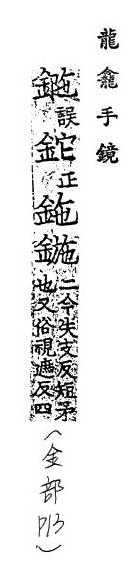 龍龕手鏡
誤鉈正鉇鍦二今失支反短矛
也又俗視遮反四
(金部P13)